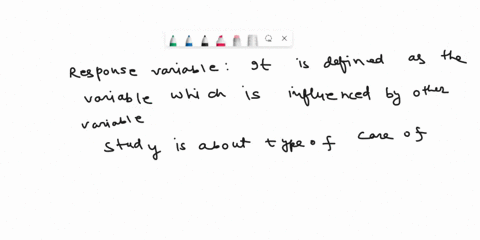 Response variable: It is defined as the
variable which is influenced by other
variable
study is about type of care of